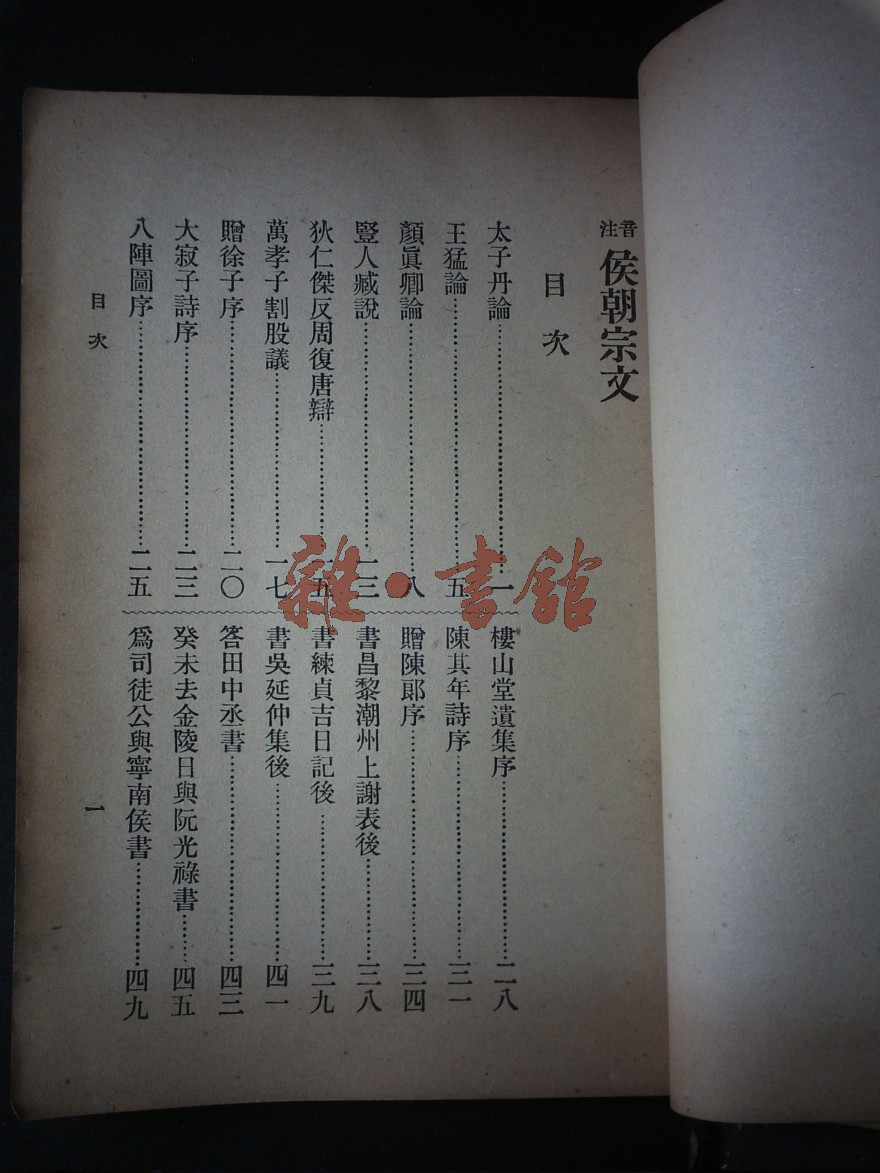 音注 侯朝宗文
目次
太子丹論……一
王猛論……五
顏眞卿論……八
豎人臧說……一三
狄仁傑反周復唐辯……一五
萬孝子割股議……一七
贈徐子序……二〇
大寂子詩序……二三
八陣圖序……二五
樓山堂遺集序……二八
陳其年詩序……三一
贈陳郎序……三四
書昌黎潮州上謝表後……三八
書練貞吉日記後……三九
書吳延仲集後……四一
答田中丞書……四三
癸未去金陵日與阮光祿書……四五
爲司徒公與寧南侯書……四九
目次
一
雜·書館